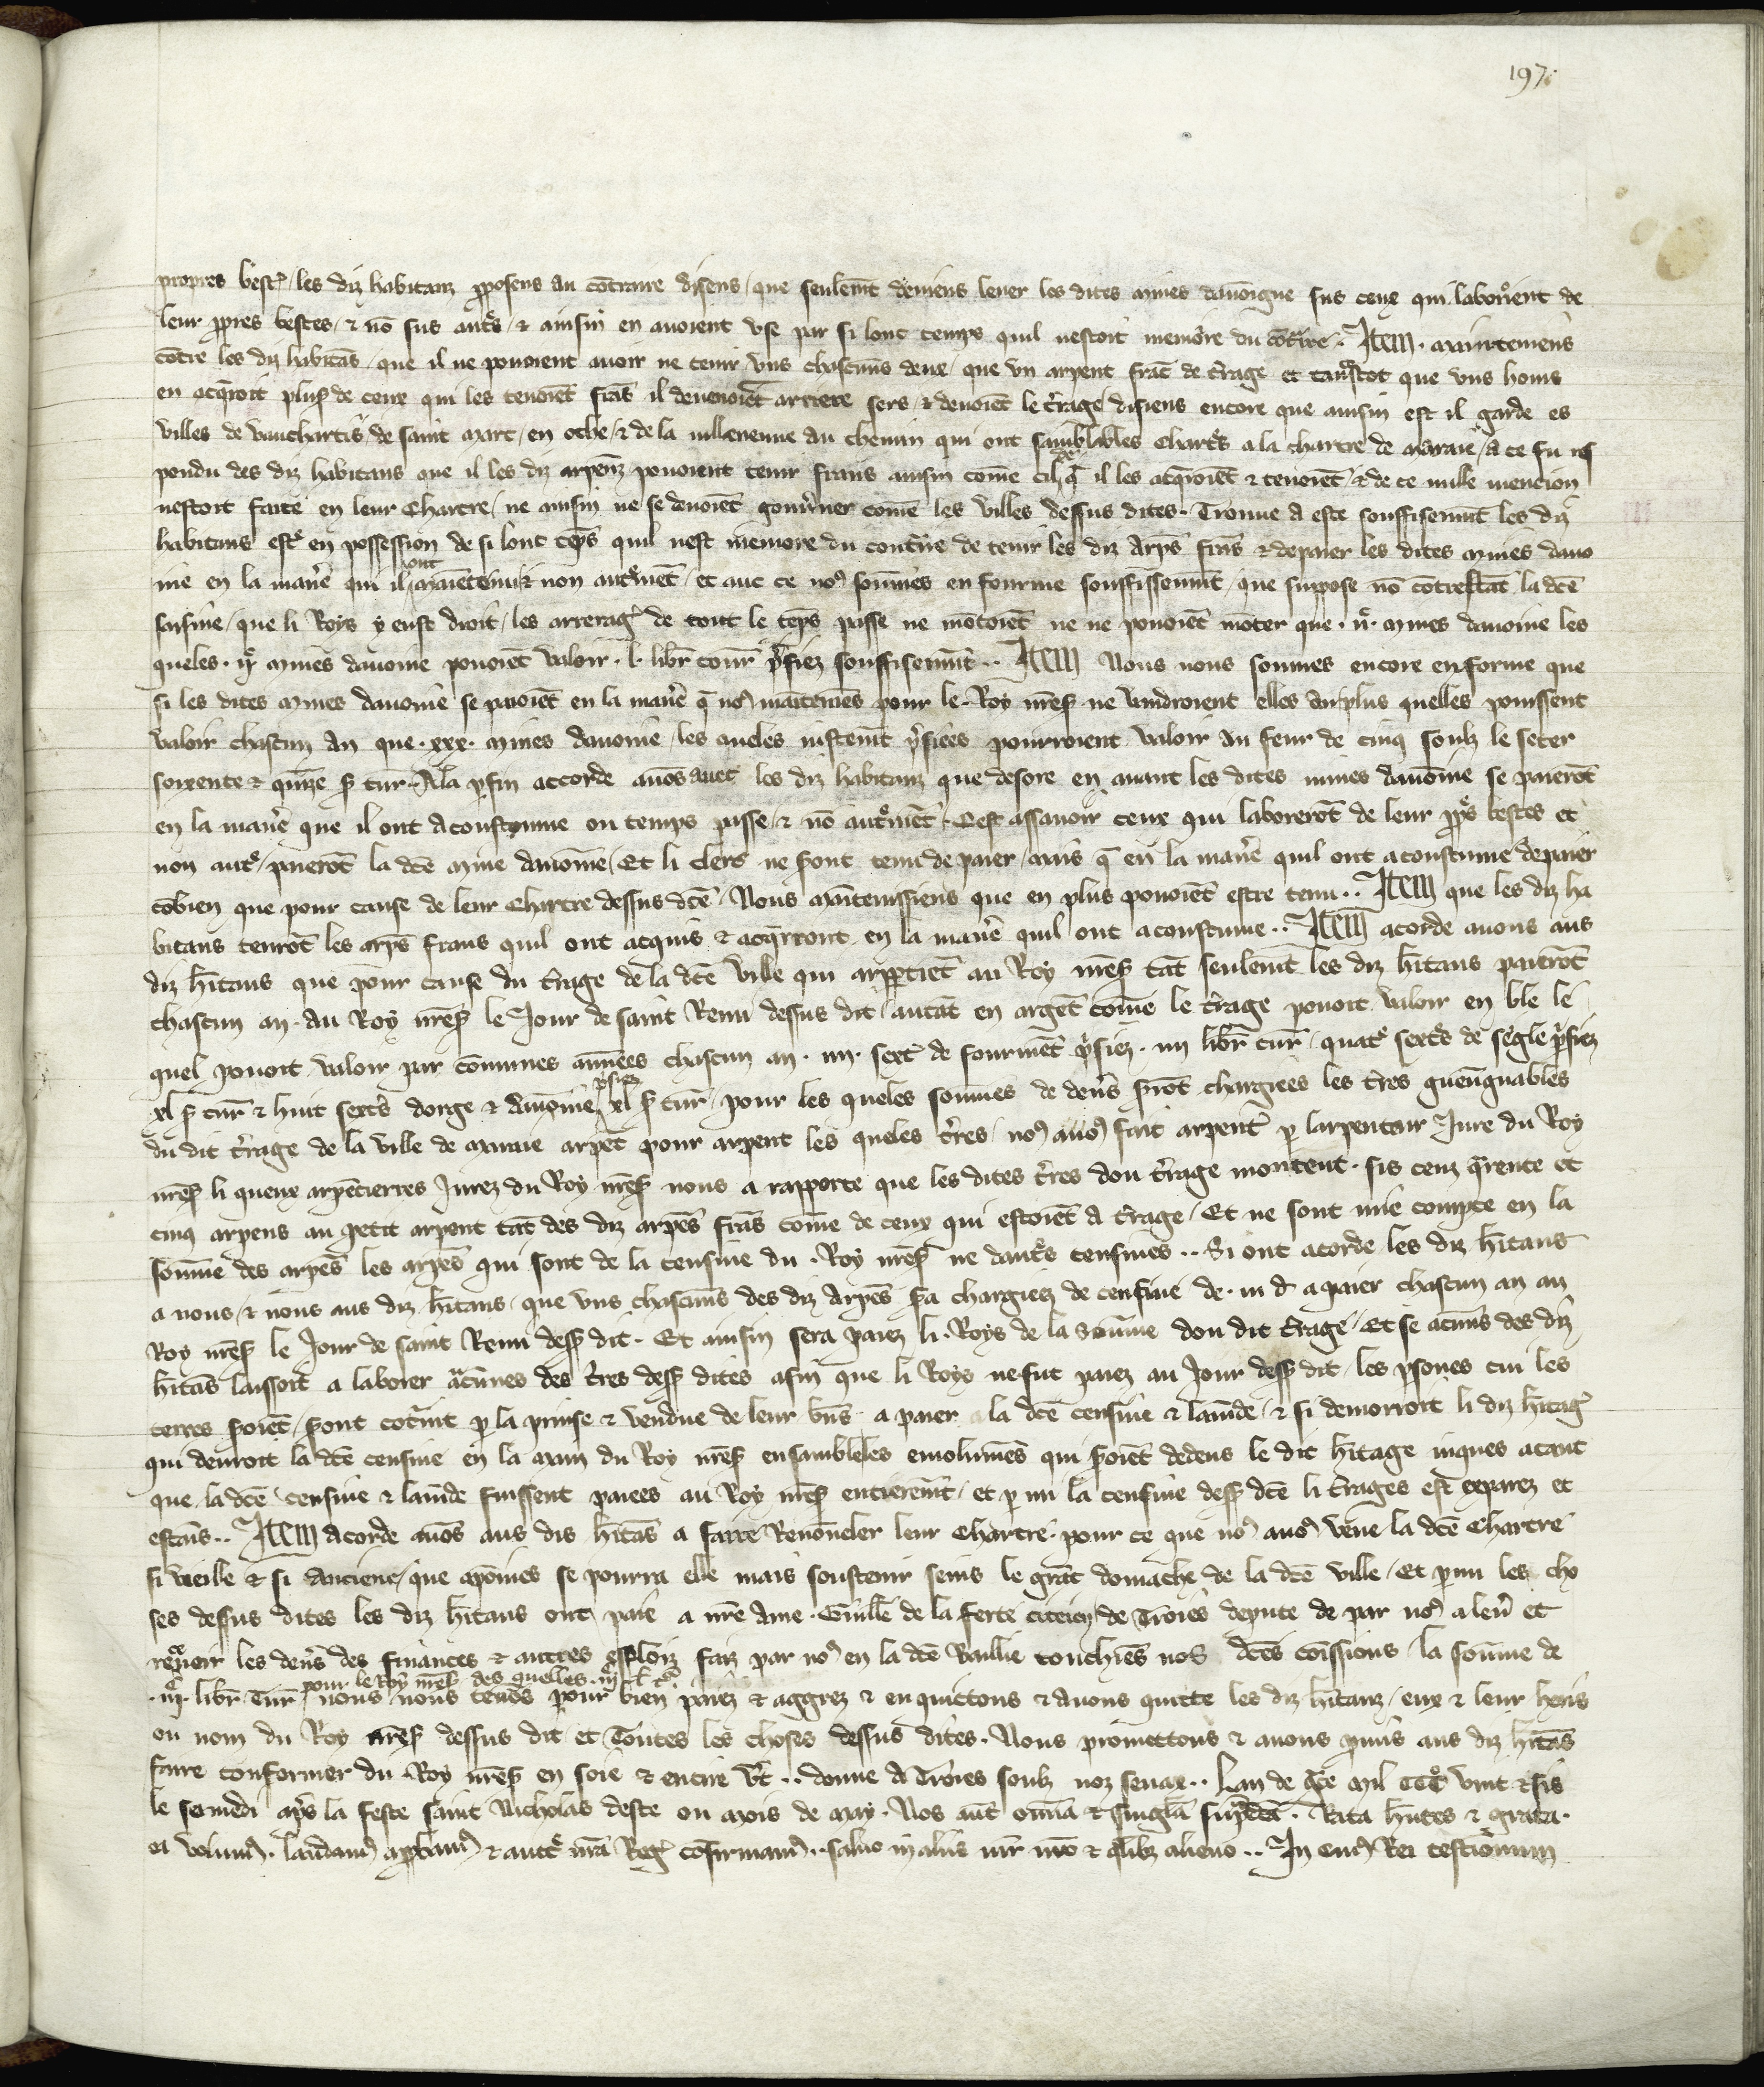 197
propres best̾ / les diz habitanz p̱posens au cōtraire disens / que seulem̄t deuiens leuer les dites mines dauoigne sus ceux qui labor̾ient de
leur p̱pres bestes / ⁊ nō sus aut̾s / ⁊ ainsin en auoient vse par si lonc temps quil nestoit memoire du cōt̾ire · Item · maintemens
cōtre les diz habitās / que il ne pouoient auoir ne tenir vns chascuns deux / que vn arpent franc de t̾rage et tantost que vns homs
en acq̄roit plus de ceux qui les tenoiēt frās il deuenoiēt arriere sers / ⁊ deuoiēt le t̾rage / disiens encore que ainsin est il garde es
villes de vauchartis / de saint marc / en othe / ⁊ de la villeneuue au chemin qui ont samblables chart̾s a la chartre de maraie / a ce fu res
pondu des diz habitans que il les diz arpenz pouoient tenir frans ainsin cōme cil q̄ il les acq̄roiēt ⁊ tenoiēt / ⁊ de ce nulle mencion
nestoit faite en leur chartre / ne ainsin ne se deuoiēt gouu̾ner cōme les villes dessus dites · Trouue a este souffisenmt les diz
habitans est̾ en possession de si lonc tēps quil nest memore du cont̾ire de tenir les diz arpēs frās ⁊ de paier les dites mines dauo
ine en la man̾e qui il ont maītenu ⁊ non autrem̄t / et auec ce no⁹ sōmes enfourme souffissenmt / que supose nō cōtrestāt la dc̄e
saisine / que li Roys y eust droit / les arrerag̾ de tout le tēps passe ne mōtoiēt ne ne pouoiēt mōter que · ii͛ · mines dauoine les
queles · ii͛ mines dauoine pouoiēt valoir · l · libr̄ tour̄ p̾siez souffisenmt · · Item Nous nous sommes encore enforme que
si les dites mines dauoine se paioiēt en la man̾e q̄ no⁹ maītemes pour le · Roy nr̄es͛ ne vaudroient elles au plus quelles pouissent
valoir chascun an que · xxx · mines dauoine / les queles iustem̄t p̾siees pourroient valoir au feur de cinq soulz le seter
soixente ⁊ quīze s͛ tur̄ · A la p̱fin accorde auōs auec les diz habitanz que desore en auant les dites mines dauoine se paierōt
en la man̾e que il ont acoustume ou temps passe / ⁊ nō aut̾mēt · Cest assauoir ceux qui laborerōt de leur p̱p̾s bestes et
non aut̾ / paierōt la dc̄e mine dauoine / Et li clers ne s͛ont tenu de paier / mais q̄ en la man̾e quil ont acoustume de paier
cōbien que pour cause de leur chartre dessus dc̄e / Nous maītenissiens que en plus pouoiēt estre tenu · · Item que les diz ha
bitans tenrōt les arpēs frans quil ont acquis ⁊ acq̄rront en la man̾e quil ont acoustume · · Item acorde auons aus
diz h̄itans que pour cause du t̾rage de la dc̄e ville qui app̱tiēt au Roy nr̄es͛ tāt seulem̄t les diz h̄itans paierōt
chascun an · au Roy nr̄es͛ le Jour de saint Remi dessus dit / autāt en argēt cōme le t̾rage pouoit valoir en ble le
quel pouoit valoir par cōmunes annees chascun an · iiii · sext̾ de fourmēt p̾siez · iiii libr̄ tur̄ / quat̾ sext̾s de segle p̾siez
xl s͛ tur̄ ⁊ huit sext̾s dorge ⁊ dauoine p̾siez xl s͛ tur̄ / pour les queles sōmes de den̾s s͛rōt chargiees les t̾res gueugnables
du dit t̾rage de la ville de maraie arpēt pour arpent les queles t̾res / no⁹ auo⁹ fait arpent̾ p̱ larpenteur Jure du Roy
nr̄es͛ li queux arpētierres Jurez du Roy nr̄es͛ nous a rapporte que les dites t̾res dou t̾rage montent · sis cenz q̄rente et
cinq arpens au petit arpent tāt des diz arpēs frās cōme de ceux qui estoiēt a t̾rage / Et ne sont mie compte en la
sōme des arpēs les arpēs qui sont de la censiue du · Roy nr̄es͛ ne daut̾s censiues · · Si ont acorde / les diz h̄itans
a nous / ⁊ nous aus diz h̄itans / que vns chascuns des diz arpēs s͛a chargiez de censiue de · iii d̄ a paier chascun an au
Roy nr̄es͛ le Jour de saint Remi dess͛ dit · Et ainsin sera paiez li · Roys de la sōme dou dit t̾rage / Et se aucuns des diz
h̄itās laissoit a laborer aucūnes des t̾res dess͛ dites afin que li Roys ne fut paiez au Jour dess͛ dit / les p̱sones cui les
terres s͛oiēt / s͛ont cōt̾int p̱ la prinse ⁊ vendue de leur b̄ns a paier a la dc̄e censiue ⁊ lam̄de / ⁊ si demorroit li diz h̄itag̾
qui deuroit la dc̄e censiue en la main du Roy nr̄es͛ ensamble les emolumēs qui s͛oiēt dedens le dit h̄itage iuques atant
que la dc̄e censiue ⁊ lam̄de fuissent paiees au Roy nr̄es͛ entierem̄t / et p̱ mi la censiue dess͛ dc̄e li t̾rages est exparez et
estains · · Item acorde auōs aus dis h̄itās a faire Renoūeler leur chartre · pour ce que no⁹ auo⁹ veue la dc̄e chartre
si vieille ⁊ si anciene / que a poines se pourra elle mais soustenir seins le grāt domache de la dc̄e ville / Et p̱mi les cho
ses dessus dites les diz h̄itans ont paie a nr̄e ame · Guill̄e de la ferte citeien de Troies depute de par no⁹ a leu̾ et
receuoir les den̾s des finances ⁊ autres exploiz faiz par no⁹ en la dc̄e Baillie touchiēs nos dc̄es cōissions / la sōme de
pour le Roy nr̄es͛ des quelles · iii͛ l t͛
· iii͛ · libr̄ Tur̄ nous nous tenōs pour bien paiez ⁊ aggrez ⁊ en quictons ⁊ auons quicte les diz h̄itanz / eux ⁊ leur hoirs
ou nom du Roy nr̄es͛ dessus dit / et Toutes les choses dessus dites · Nous promettons ⁊ auons p̱mis aus diz h̄itās
faire confermer du · Roy nr̄es͛ en soie ⁊ en cire v̾t · · donne a Troies soulz noz seaux · · Lan de gr̄ce mil ccc͛ vint ⁊ sis
le semedi ap̾s la feste saint Nicholas deste ou mois de may · Nos aūt om̄ia ⁊ singl̄a sup̱dc̄a · Rata h̄ntes ⁊ grata ·
ea volum⁹ · laudam⁹ app̱bam⁹ ⁊ auct̾ nr̄a Reg̾ cōfirmam⁹ · · saluo in aliis iur̄ nr̄o ⁊ q̱libꝫ alieno · · In cui⁹ Rei testimoniū